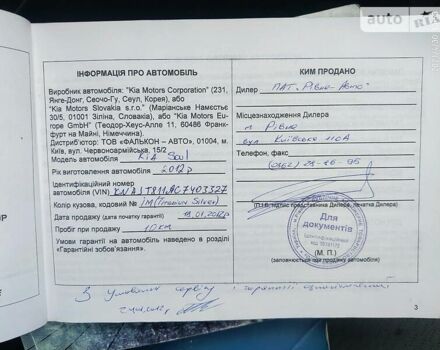 auto RIA
ІНФОРМАЦІЯ ПРО АВТОМОБІЛЬ
Виробник автомобіля: "Kia Motors Corporation" (231,
Янге-Донг, Сеочо-Гу, Сеул, Корея), або
"Kia Motors Slovakia s.r.o." (Маріанське Намєстьє
30/5, 01001 Зіліна, Словакія), або "Kia Motors Eu-
rope GmbH" (Теодор-Хеус-Алле 11, 60486 Франк-
фурт на Майні, Німеччина).
Дистриб'ютор: ТОВ «ФАЛЬКОН – АВТО», 01004, м.
Київ, вул. Червоноармійська, 15/2
Модель автомобіля KIA Soul
Рік виготовлення автомобіля 2012р
Ідентифікаційний номер
автомобіля (VIN)
Колір кузова, кодовий № IM (Titanium Silver)
Дата продажу (дата початку гарантії) 18.01.2012р
Пробіг при продажу 10 км
Умови гарантії на автомобіль наведено в розділі
«Гарантійні зобов'язання».
КИМ ПРОДАНО
Дилер ПАТ "Рівне-Авто"
Місцезнаходження Дилера
м Рівне
вул Київська 110А
Телефон, факс
(П.І.Б, підпис представника Дилера, печатка Дилера)
Для
документів
(М. П.)
(заповнюється при продажу автомобіля)
З умовами сервісу і гарантії ознайомлений
3